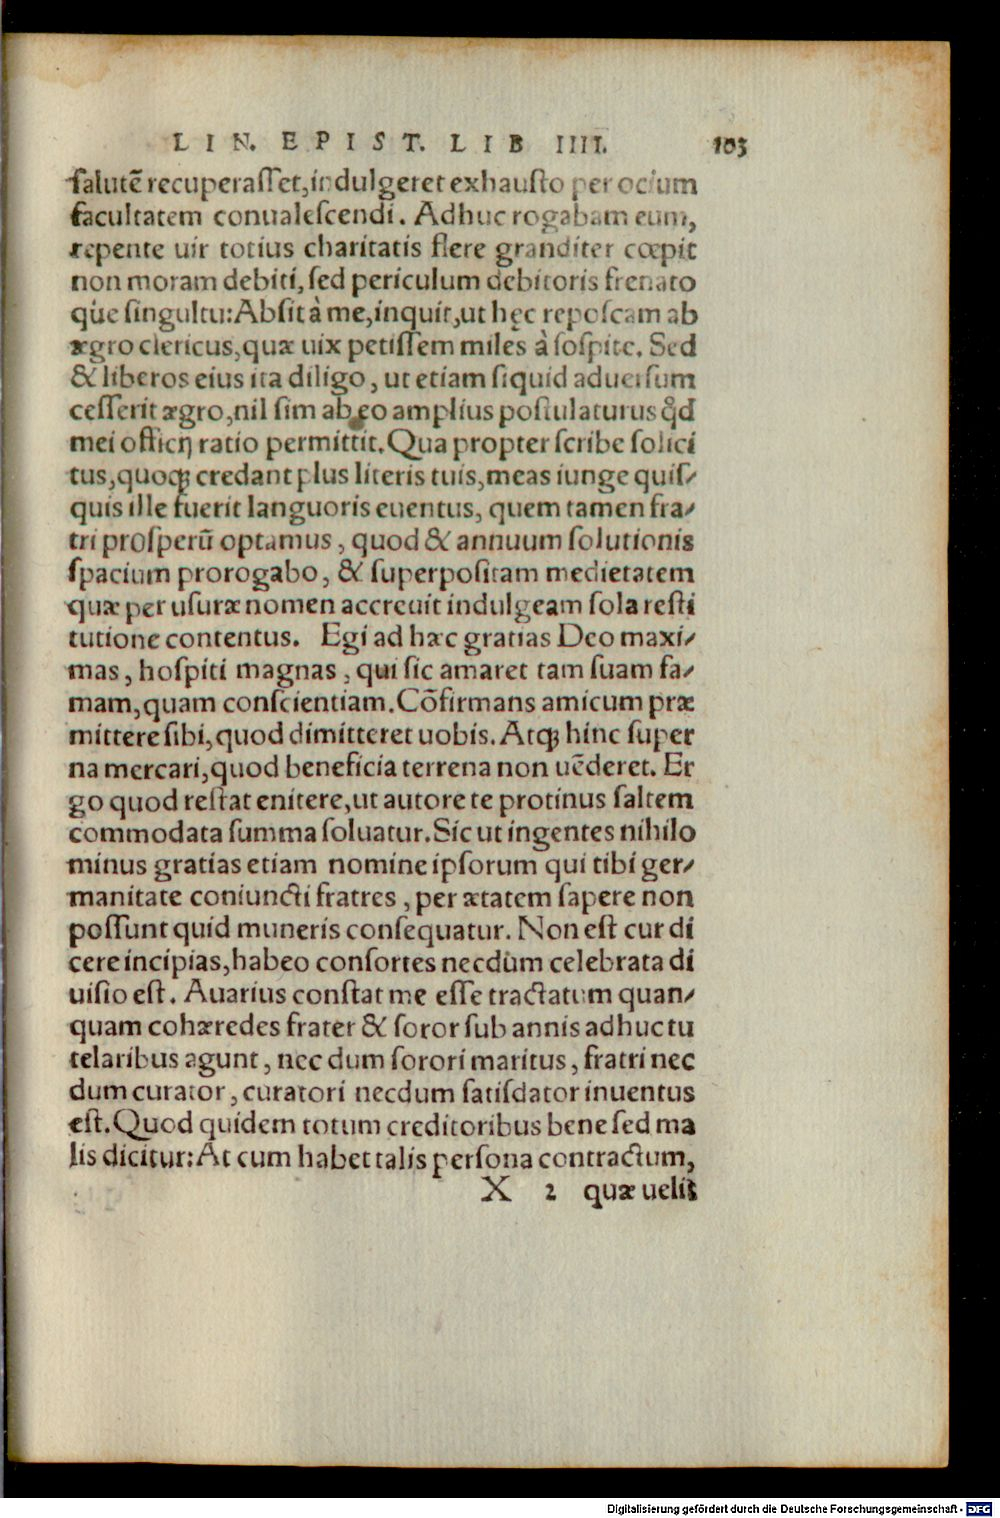 LIN. EPIST. LIB IIII. 103
ſalutē recuperaſſet, indulgeret exhauſto per ocium
facultatem conualeſcendi. Adhuc rogabam eum,
repente uir totius charitatis flere granditer cœpit
non moram debiti, ſed periculum debitoris frenato
q́ue ſingultu: Abſit à me, inquit, ut hęc repoſcam ab
ægro clericus, quæ uix petiſſem miles à ſoſpite. Sed
& liberos eius ita diligo, ut etiam ſiquid aduerſum
ceſſerit ægro, nil ſim ab eo amplius poſtulaturus qđ
mei officij ratio permittit. Qua propter ſcribe ſolici
tus, quoq; credant plus literis tuis, meas iunge quiſ-
quis ille fuerit languoris euentus, quem tamen fra-
tri proſperū optamus, quod & annuum ſolutionis
ſpacium prorogabo, & ſuperpoſitam medietatem
quæ per uſuræ nomen accreuit indulgeam ſola reſti
tutione contentus. Egi ad hæc gratias Deo maxi-
mas, hoſpiti magnas, qui ſic amaret tam ſuam fa-
mam, quam conſcientiam. Cōfirmans amicum præ
mittere ſibi, quod dimitteret uobis. Atq; hinc ſuper
na mercari, quod beneficia terrena non uēderet. Er
go quod reſtat enitere, ut autore te protinus ſaltem
commodata ſumma ſoluatur. Sic ut ingentes nihilo
minus gratias etiam nomine ipſorum qui tibi ger-
manitate coniuncti fratres, per ætatem ſapere non
poſſunt quid muneris conſequatur. Non eſt cur di
cere incipias, habeo conſortes necdùm celebrata di
uiſio eſt. Auarius conſtat me eſſe tractatum quan-
quam cohæredes frater & ſoror ſub annis adhuc tu
telaribus agunt, nec dum ſorori maritus, fratri nec
dum curator, curatori necdum ſatiſdator inuentus
eſt. Quod quidem totum creditoribus bene ſed ma
lis dicitur: At cum habet talis perſona contractum,
X 2 quæ uelit
Digitalisierung gefördert durch die Deutsche Forschungsgemeinschaft - DFG